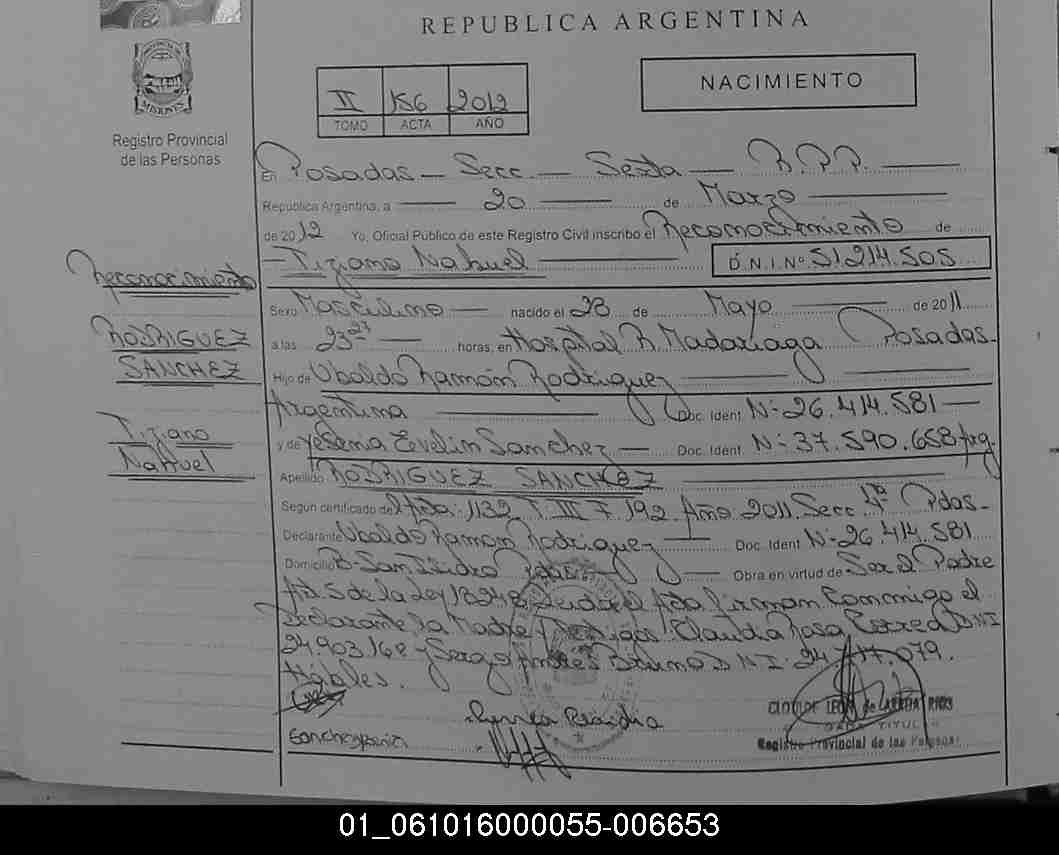 REPUBLICA ARGENTINA
NACIMIENTO
II 156 2012
TOMO ACTA AÑO
MISIONES
Registro Provincial
de las Personas
En Posadas — Secc — Sexta — R.P.P.
República Argentina, a 20 de Marzo
de 2012 Yo, Oficial Público de este Registro Civil inscribo el Reconocimiento de
Tiziano Nahuel D.N.I. Nº 51.214.505
Reconocimiento
Sexo Masculino nacido el 28 de Mayo de 2011
RODRIGUEZ
SANCHEZ
a las 23 27 horas, en Hospital R. Madariaga Posadas-
Hijo de Ubaldo Ramón Rodriguez
Argentina Doc. Ident. Nº 26.414.581
Tiziano
Nahuel
y de Yesena Evelin Sanchez Doc. Ident. Nº 37.590.658 Arg.
Apellido RODRIGUEZ SANCHEZ
Según certificado del Acta: 1132 T. III F. 192 Año 2011. Secc. 4ta Pdas-
Declarante Ubaldo Ramón Rodriguez Doc. Ident. Nº 26.414.581
Domicilio Bº San Isidro Obra en virtud de Ser el Padre
Art. 5 de la Ley 18248 Leida el Acta firman Conmigo el
Declarante, la Madre y Testigos: Claudia Rosa DNI
24.903.168 y Sergio Andrés Bruno DNI 24.717.079.
Hábiles.
Registro Provincial de las Personas
01_061016000055-006653